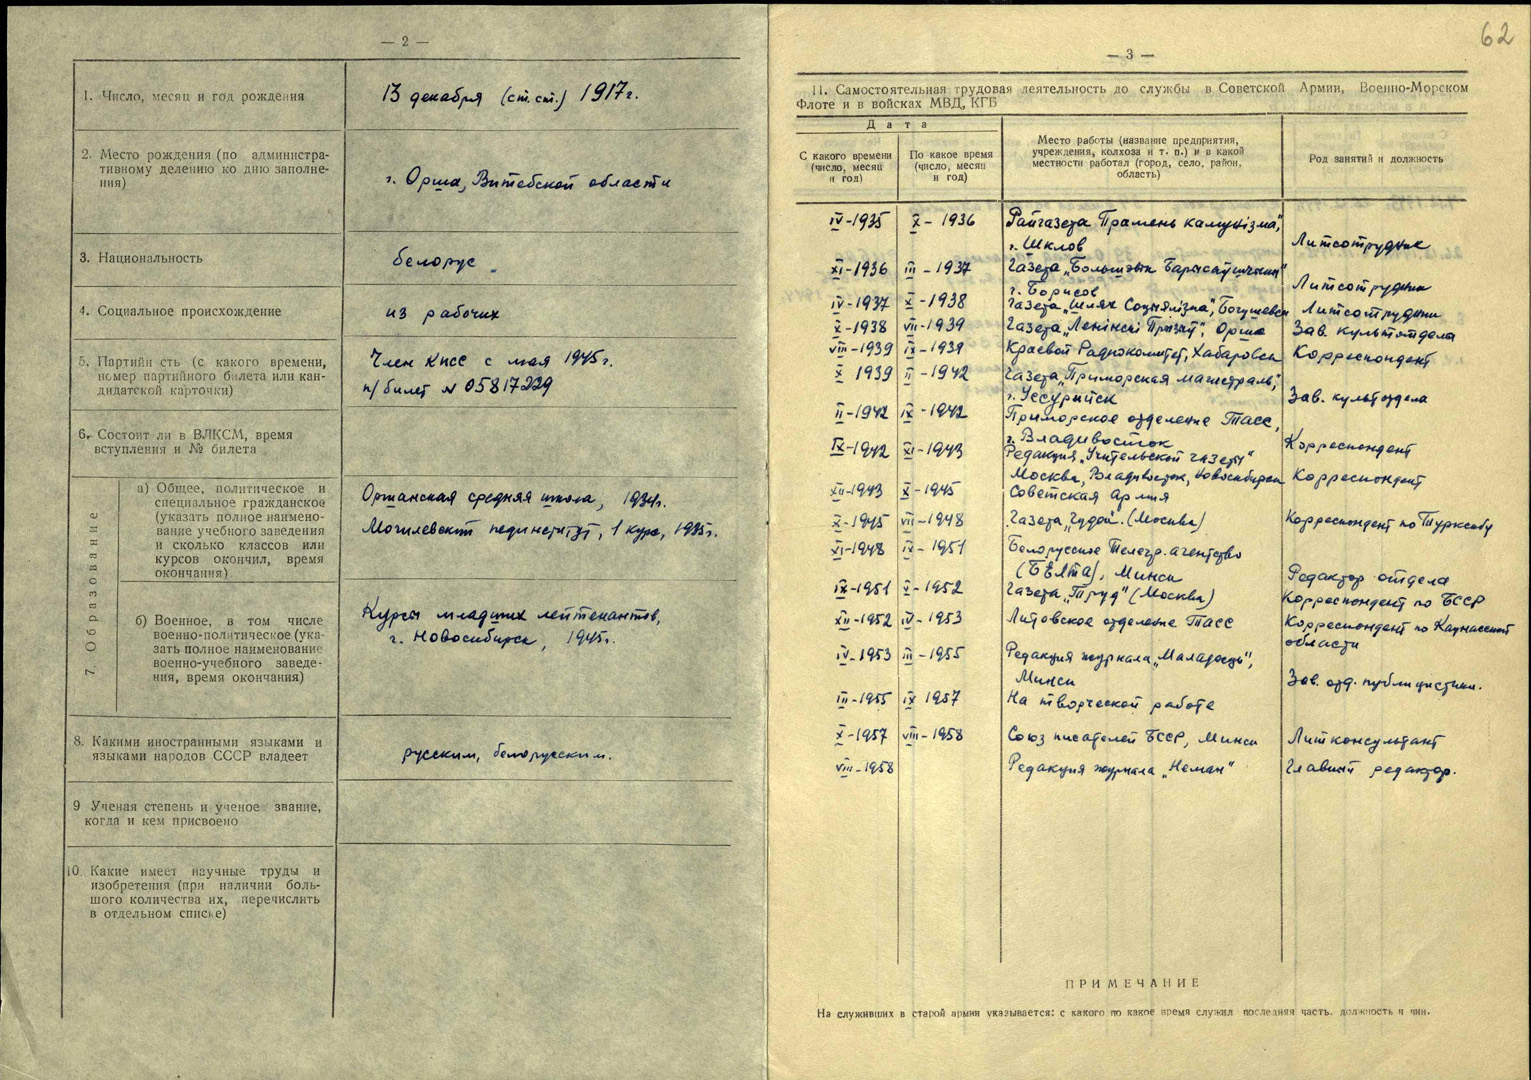 — 2 —
1. Число, месяц и год рождения
13 декабря (ст.ст.) 1917г.
2. Место рождения (по администра-
тивному делению ко дню заполне-
ния)
г. Орша, Витебской области
3. Национальность
белорус
4. Социальное происхождение
из рабочих
5. Партийн сть (с какого времени,
номер партийного билета или кан-
дидатской карточки)
Член КПСС с мая 1945г.
п/билет № 05817229
6. Состоит ли в ВЛКСМ, время
вступления и № билета
7. Образование
а) Общее, политическое и
специальное гражданское
(указать полное наимено-
вание учебного заведения
и сколько классов или
курсов окончил, время
окончания)
Оршанская средняя школа, 1934г.
Могилевский пединститут, 1 курс, 1935г.
б) Военное, в том числе
военно-политическое (ука-
зать полное наименование
военно-учебного заведе-
ния, время окончания)
Курсы младших лейтенантов,
г. Новосибирск, 1945г.
8. Какими иностранными языками и
языками народов СССР владеет
русским, белорусским.
9 Ученая степень и ученое звание,
когда и кем присвоено
10. Какие имеет научные труды и
изобретения (при наличии боль-
шого количества их, перечислить
в отдельном списке)
62
— 3 —
11. Самостоятельная трудовая деятельность до службы в Советской Армии, Военно-Морском
Флоте и в войсках МВД, КГБ
Дата
С какого времени
(число, месяц
и год)
По какое время
(число, месяц
и год)
Место работы (название предприятия,
учреждения, колхоза и т. п.) и в какой
местности работал (город, село, район,
область)
Род занятий и должность
IV-1935 X-1936 Райгазета "Прамень камунізма",
г. Шклов Литсотрудник
XI-1936 III-1937 Газета "Большэвік Барысаўшчыны"
г. Борисов Литсотрудник
IV-1937 X-1938 Газета "Шлях Соцыялізма", Богушевск Литсотрудник
X-1938 VII-1939 Газета "Ленінскі Прызыў", Орша Зав. культотдела
VIII-1939 IX-1939 Краевой Радиокомитет, Хабаровск Корреспондент
X 1939 II-1942 Газета "Приморская магистраль",
г. Уссурийск Зав. культотдела
II-1942 IX-1942 Приморское отделение ТАСС,
г. Владивосток Корреспондент
IX-1942 XI-1943 Редакция "Учительской газеты"
Москва, Владивосток, Новосибирск Корреспондент
XII-1943 X-1945 Советская армия
X-1945 VII-1948 Газета "Гудок" (Москва) Корреспондент по Турксибу
XI-1948 IX-1951 Белорусское Телегр. агентство
(БЕЛТА), Минск Редактор отдела
IX-1951 X-1952 Газета "Труд" (Москва) Корреспондент по БССР
XII-1952 IV-1953 Литовское отделение ТАСС Корреспондент по Каунасской
области
IV-1953 III-1955 Редакция журнала "Маладосць",
Минск Зав. отд. публицистики.
III-1955 IX 1957 На творческой работе
X-1957 VIII-1958 Союз писателей БССР, Минск Литконсультант
VIII-1958 Редакция журнала "Неман" Главный редактор.
ПРИМЕЧАНИЕ
На служивших в старой армии указывается: с какого по какое время служил последняя часть. должность и чин.